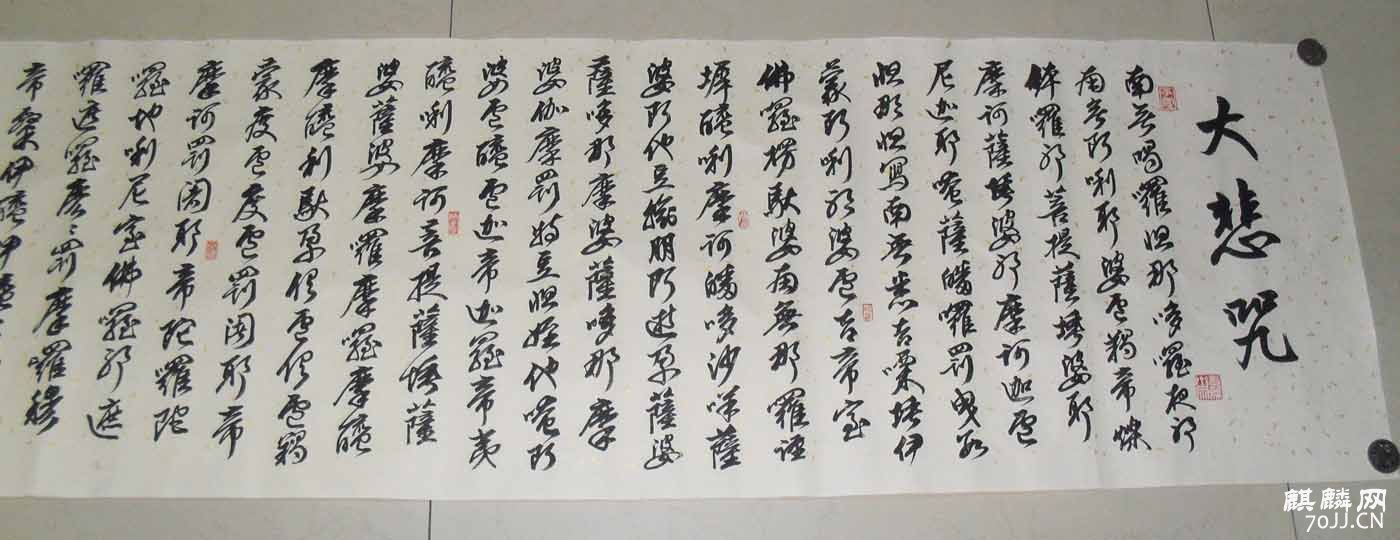 大悲咒
南无喝囉怛那哆囉夜耶
南无阿唎耶婆卢羯帝烁
钵囉耶菩提薩埵婆耶
摩诃薩埵婆耶摩诃迦卢
尼迦耶唵薩皤囉罚曳数
怛那怛写南无悉吉栗埵伊
蒙阿唎耶婆卢吉帝室
佛囉楞馱婆南無那囉谨
墀醯唎摩诃皤哆沙咩薩
婆阿他豆输朋阿逝孕薩婆
薩哆那摩婆薩哆那摩
婆伽摩罚特豆怛姪他唵阿
婆卢醯卢迦帝迦羅帝夷
醯唎摩诃菩提薩埵薩
婆薩婆摩囉摩囉摩醯
摩醯利馱孕俱卢俱卢羯
蒙度卢度卢罚闍耶帝
摩诃罚闍耶帝陀囉陀
囉地唎尼室佛囉耶遮
囉遮囉摩々罚摩囉穆
帝隶伊醯伊醯
麒麟网
70JJ.CN